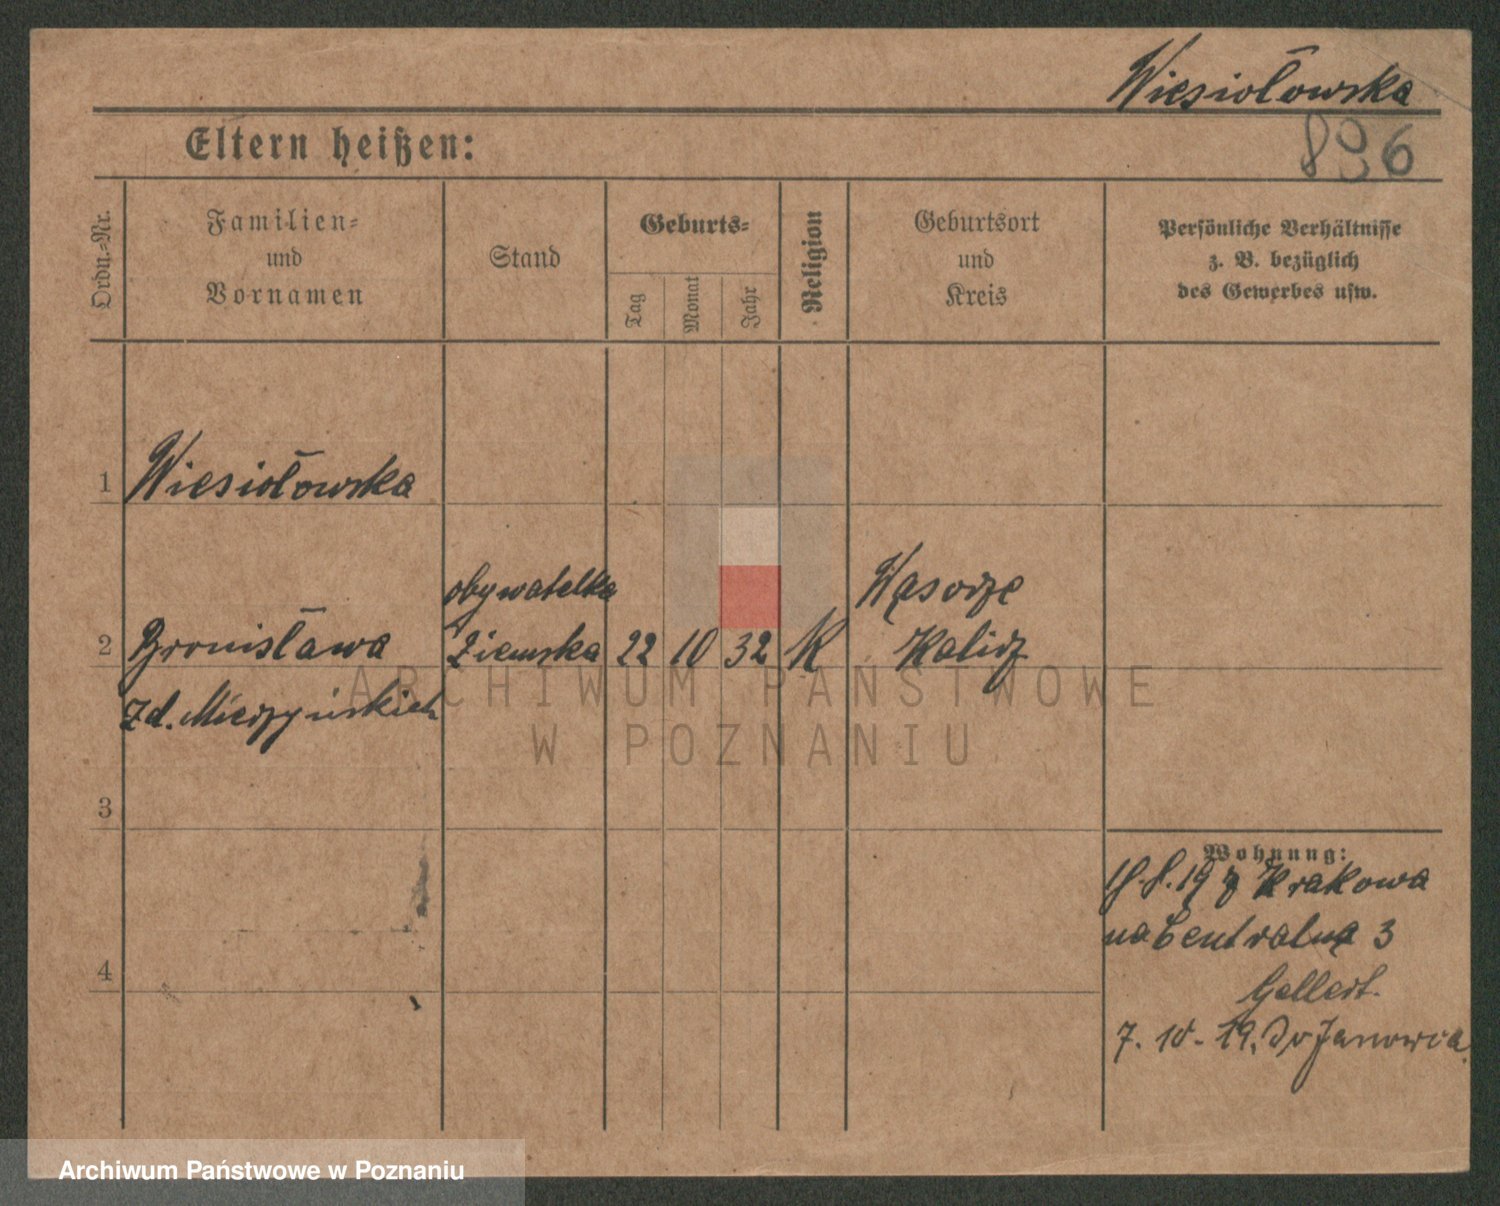 Wiesiołowska
896
Eltern heißen:
Ordn.-Nr.
Familien-
und
Vornamen
Stand
Geburts-
Tag
Monat
Jahr
Religion
Geburtsort
und
Kreis
Persönliche Verhältnisse
z. B. bezüglich
des Gewerbes usw.
1 Wiesiołowska
obywatelka Wąsorze
2 Bronisława Ziemska 22 10 32 K Kalisz
zd. Mierzyńskich
3
Wohnung:
19 z Krakowa
na Centralna 3
4
Gellert.
7. 10. 19. Do Janowca
ARCHIWUM PAŃSTWOWE
W POZNANIU
Archiwum Państwowe w Poznaniu